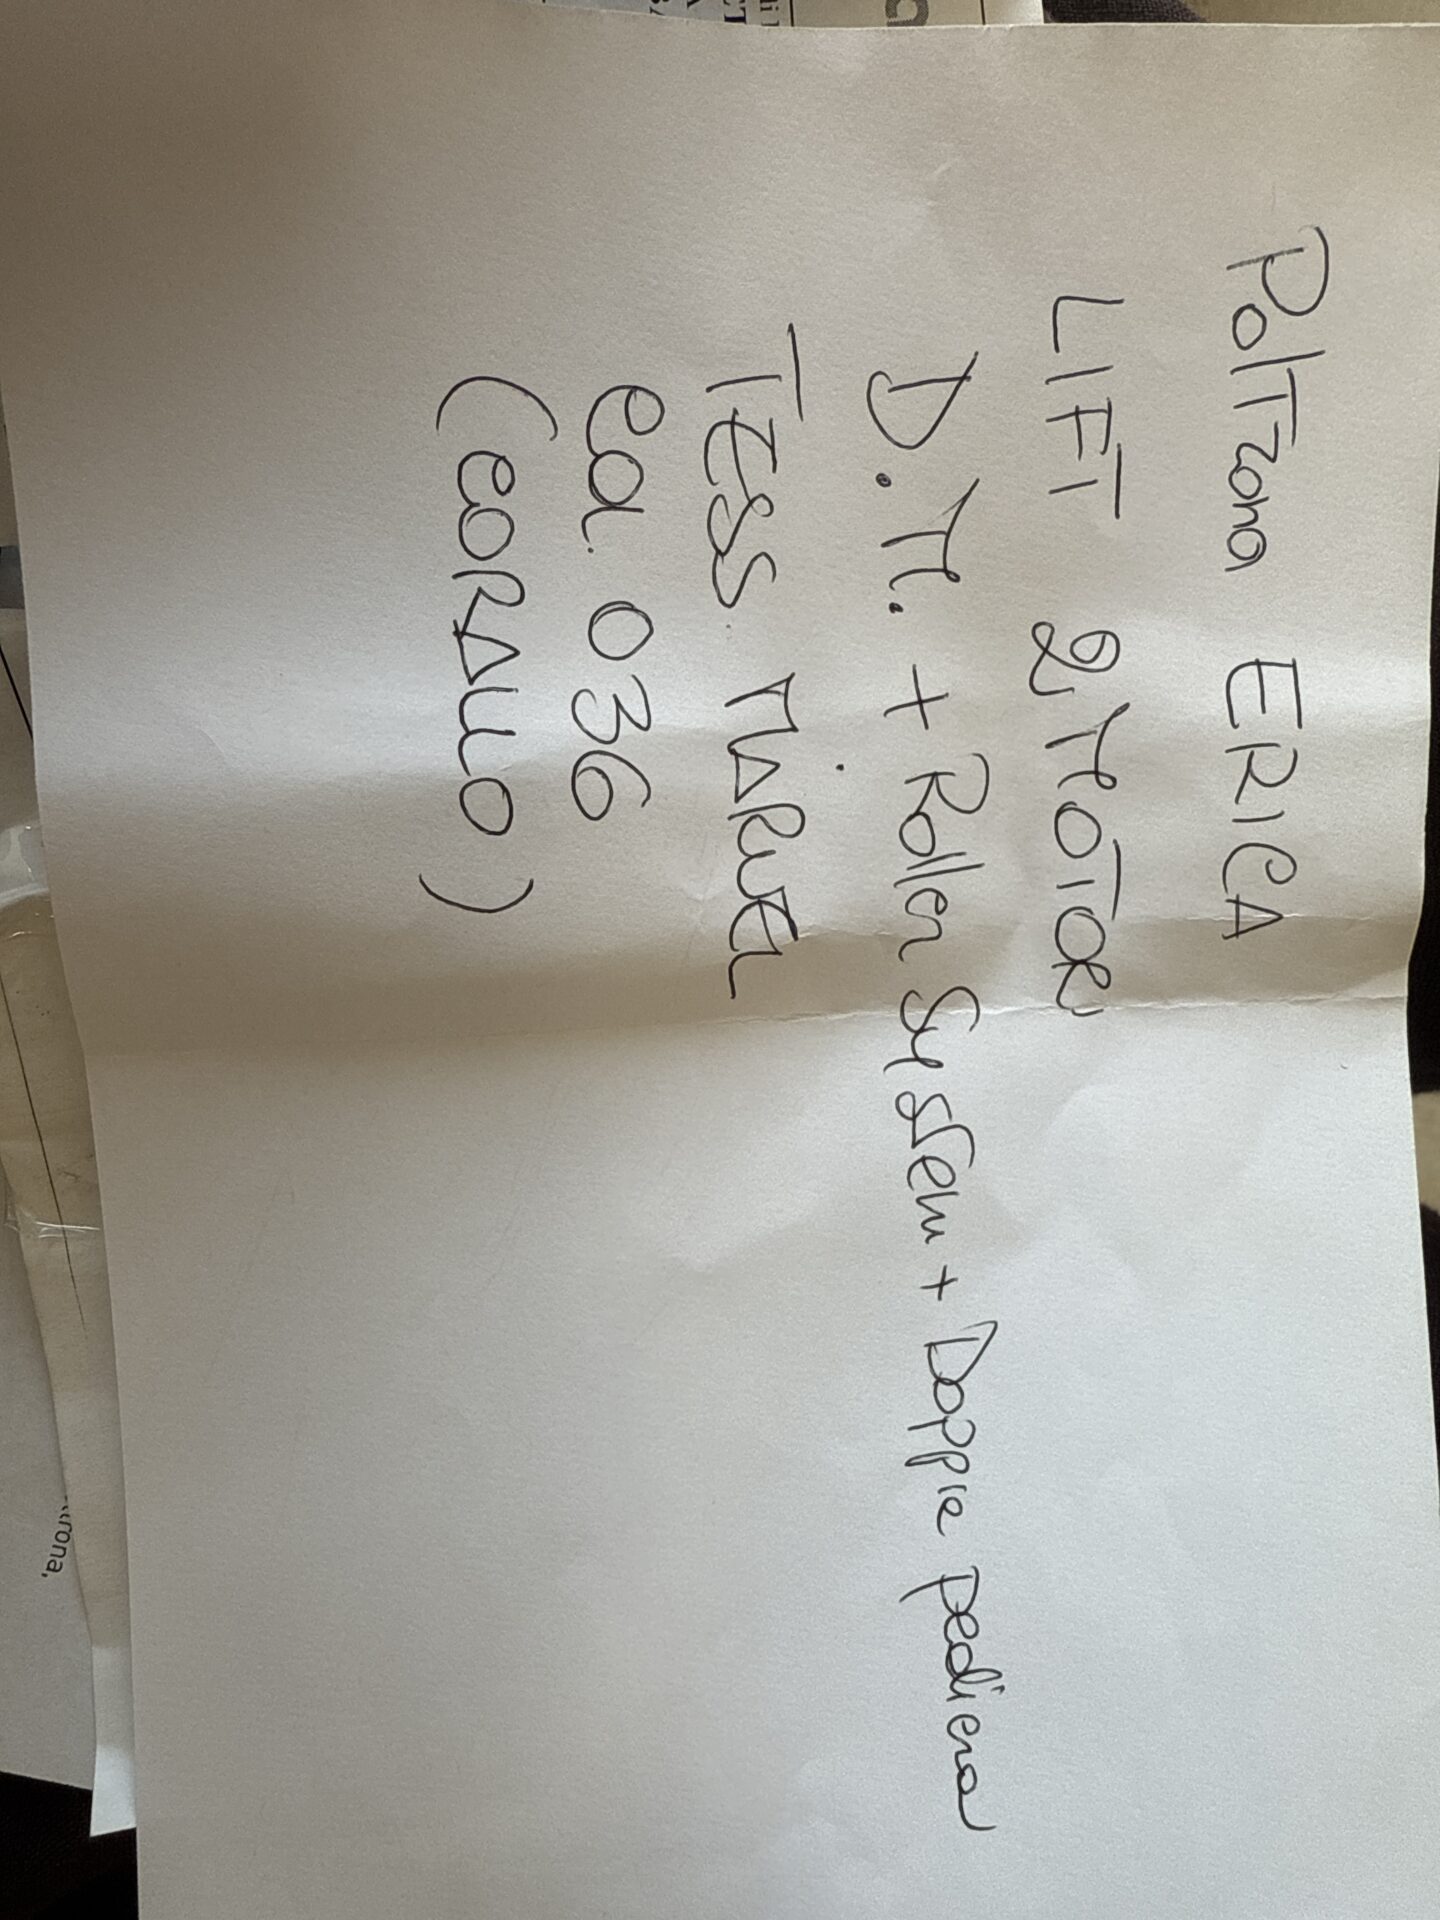 Poltrona ERICA
LIFT 2 MOTORI
D.M. + Roller System + Doppia pediera
TESS. MARVEL
COL. 036
(CORALLO)
urona,